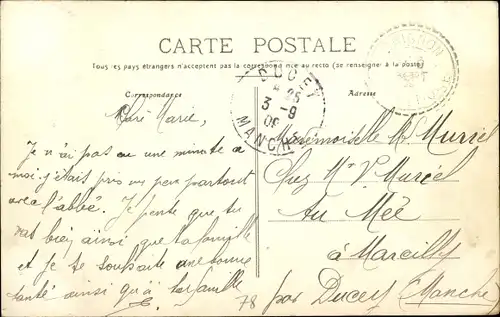 CARTE POSTALE
Tous les pays étrangers n'acceptent pas la correspondance au recto (se renseigner à la poste)
Correspondance
Adresse
DUCEY
25
3-9
06
MANCHE
Marie,
Je n'ai pas eu une minute à
moi j'étais pris un peu partout
avec l'abbé. Je pense que tu
vat bien, ainsi que ta famille
et je te souhaite une bonne
santé ainsi qu'à ta famille
Mademoiselle M. Murriel
Chez Mr V. Muriel
Au Mée
à Marcilly
par Ducey (Manche)
78